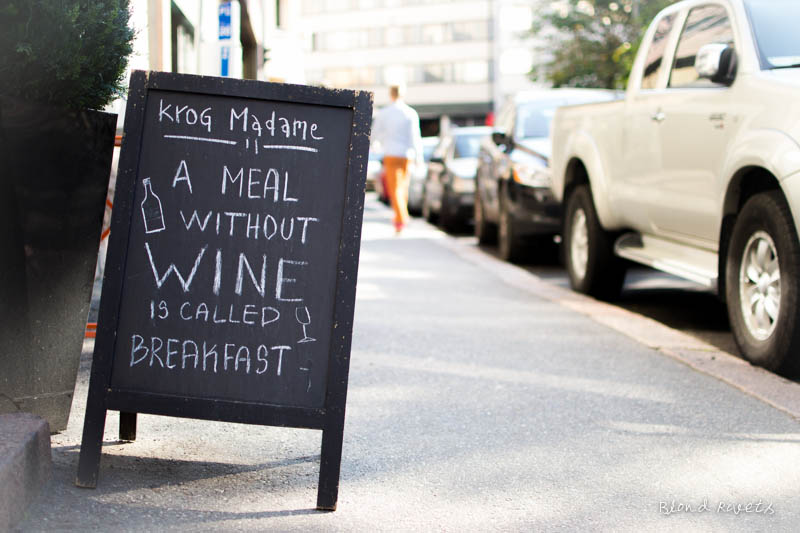 Krog Madame
A MEAL
WITHOUT
WINE
IS CALLED
BREAKFAST
Blond Rivets